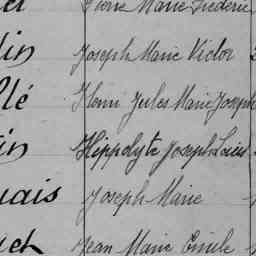 Pierre Marie Frédéric
lin Joseph Marie Victor
lé Henri Jules Marie Joseph
in Hippolyte Joseph Louis
uais Joseph Marie
uet Jean Marie Emile